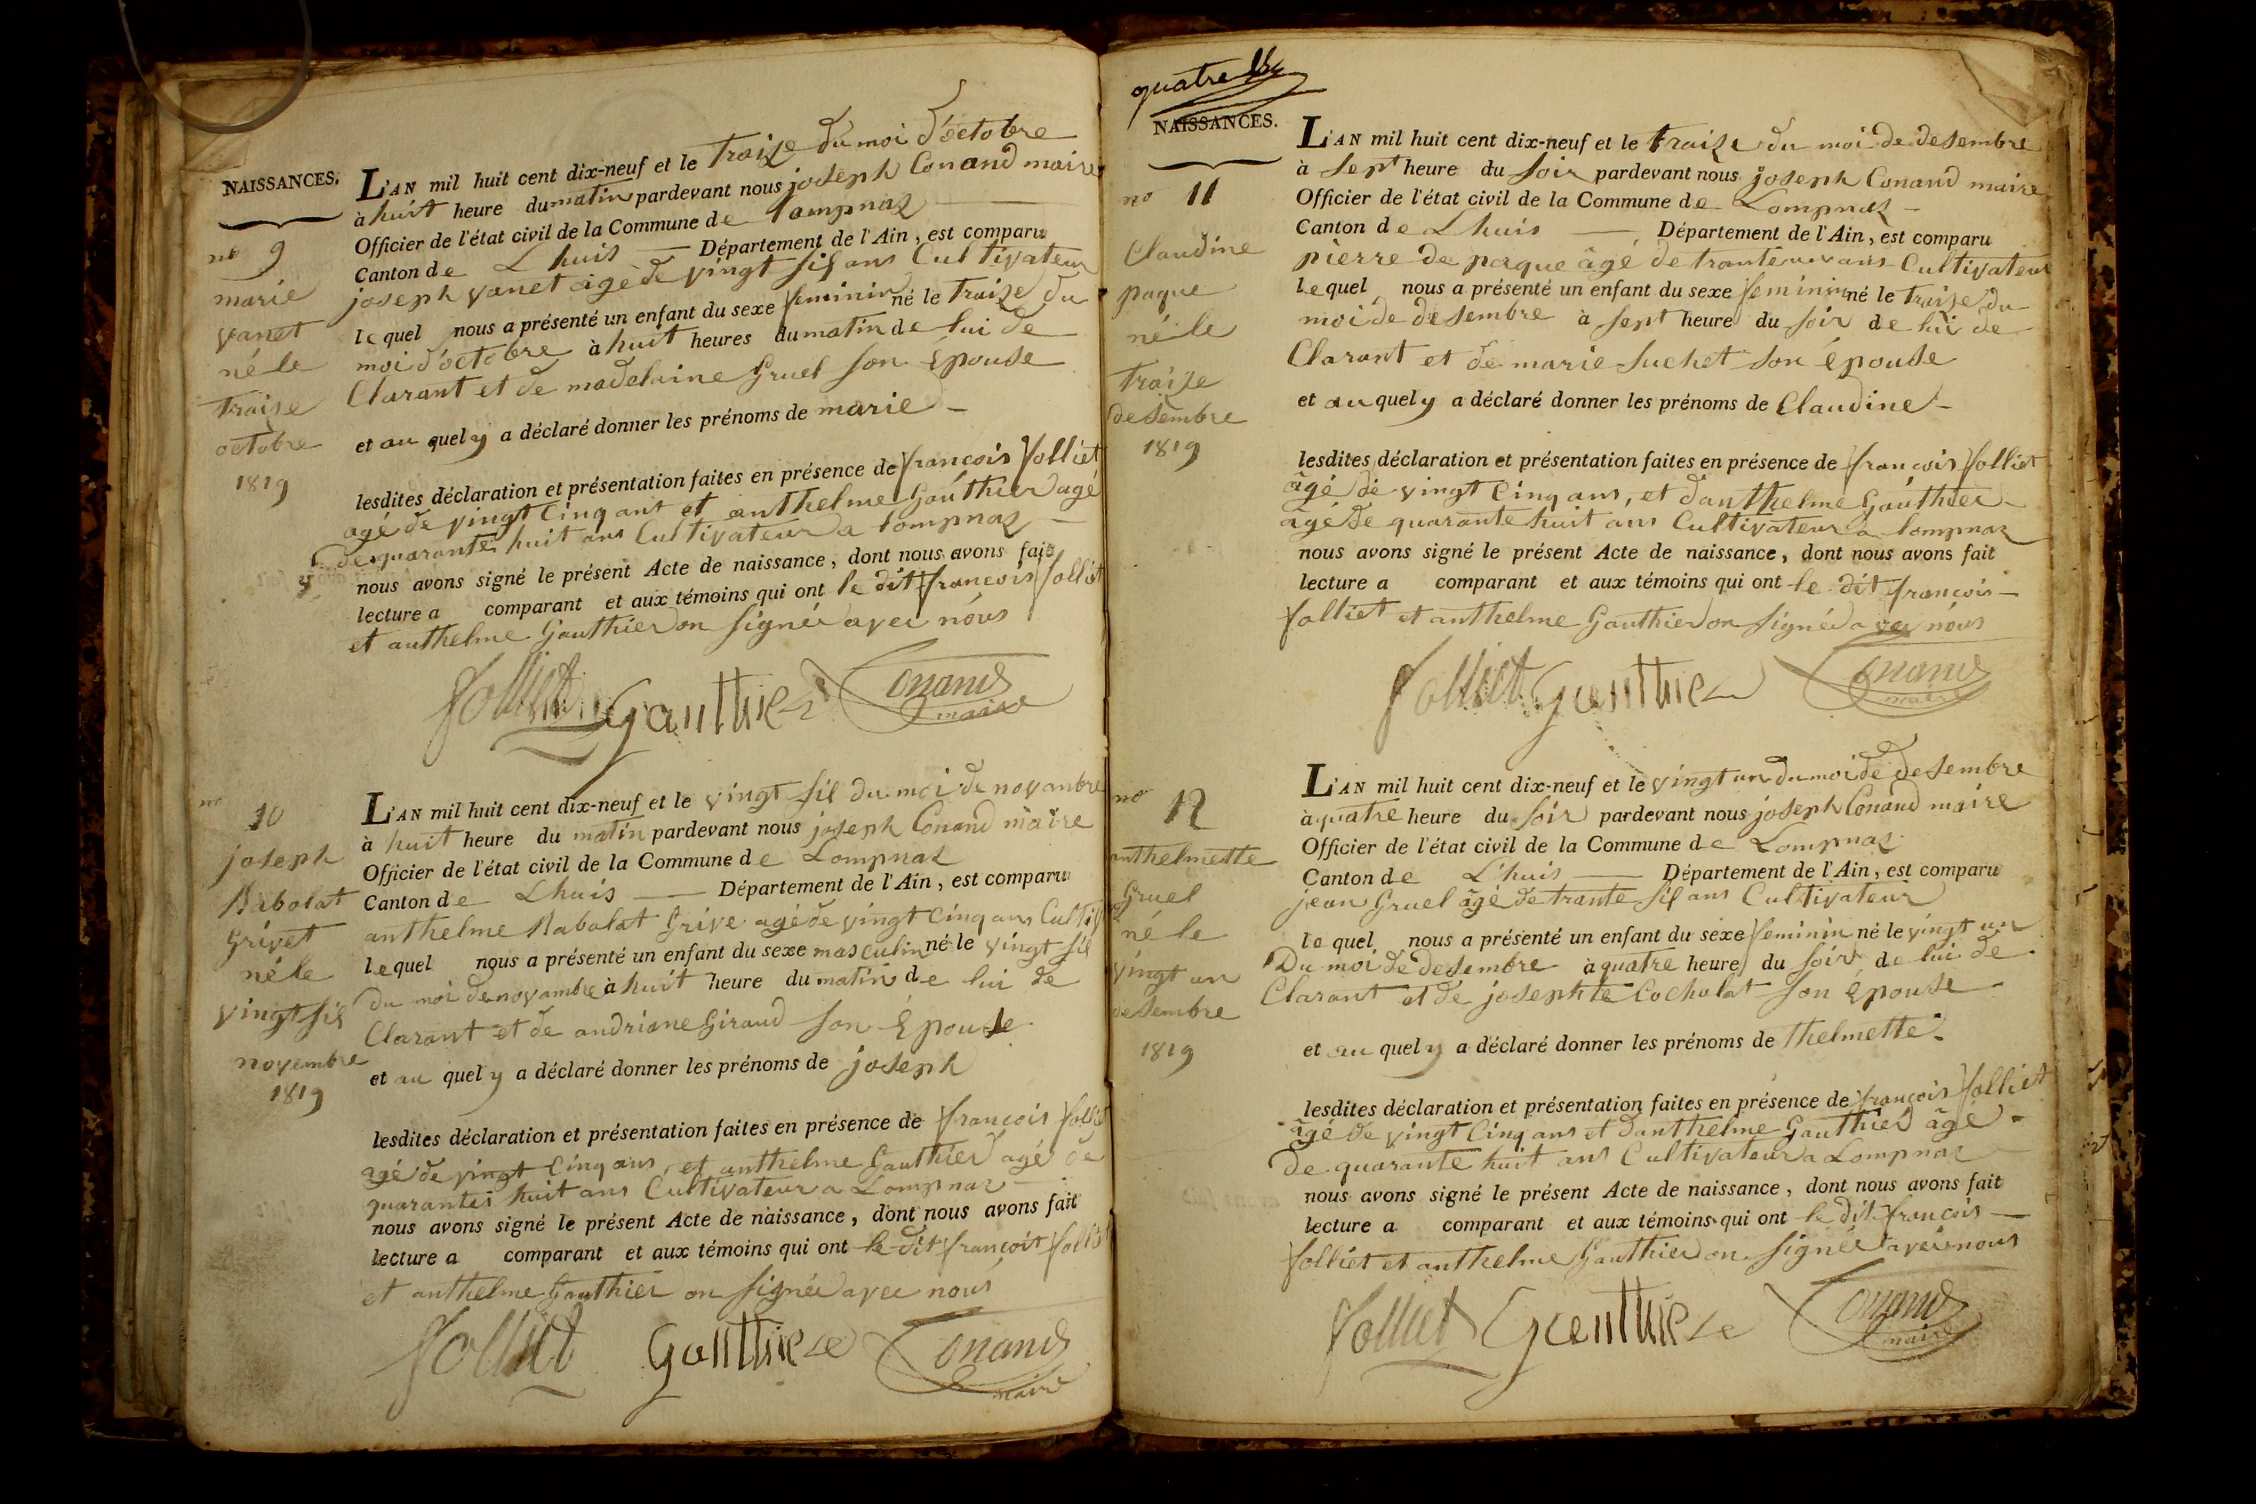 NAISSANCES.
no 9
marie
vanet
né le
traize
octobre
1819
L'AN mil huit cent dix-neuf et le traize du moi d'octobre
à huit heure du matin pardevant nous joseph Conand maire
Officier de l'état civil de la Commune de Lompnaz
Canton de Lhuis Département de l'Ain, est comparu
joseph vanet agé de vingt sis ans Cultivateur
lequel nous a présenté un enfant du sexe feminin né le traize du
moi d'octobre à huit heures du matin de lui de
Clarant et de madelaine Gruel son Épouse
et au quel y a déclaré donner les prénoms de marie
lesdites déclaration et présentation faites en présence de françois folliet
agé de vingt Cinq ant et anthelme Gauthier agé
de quarante huit ans Cultivateur a lompnaz
nous avons signé le présent Acte de naissance, dont nous avons fait
lecture a comparant et aux témoins qui ont le dit françois folliet
et anthelme Gauthier on signée avec nous
folliet Gauthier Conand
maire
no
10
joseph
Rabolat
Grivet
né le
vingt sis
novembre
1819
L'AN mil huit cent dix-neuf et le vingt sis du moi de novanbre
à huit heure du matin pardevant nous joseph Conand maire
Officier de l'état civil de la Commune de Lompnaz
Canton de Lhuis Département de l'Ain, est comparu
anthelme Rabolat Grive agé de vingt Cinq ans Cultiv
lequel nous a présenté un enfant du sexe masculin né le vingt sis
du moi de novambre à huit heure du matin de lui de
Clarant et de andriane Giraud son Épouse
et au quel y a déclaré donner les prénoms de joseph
lesdites déclaration et présentation faites en présence de françois folliet
agé de vingt Cinq ans, et anthelme Gauthier agé de
quarantes huit ans Cultivateur a Lompnaz
nous avons signé le présent Acte de naissance, dont nous avons fait
lecture a comparant et aux témoins qui ont le dit françoit folliet
et anthelme Gauthier on signée avec nous
folliet Gauthier Conand
maire
quatre
NAISSANCES.
no 11
Claudine
paque
né le
traize
desembre
1819
L'AN mil huit cent dix-neuf et le traize du moi de desembre
à sept heure du soir pardevant nous joseph Conand maire
Officier de l'état civil de la Commune de Lompnaz
Canton de Lhuis Département de l'Ain, est comparu
pierre de paque âgé de trante un ans Cultivateur
lequel nous a présenté un enfant du sexe feminin né le traize du
moi de desembre à sept heure du soir de lui de
Clarant et de marie suchet son Épouse
et au quel y a déclaré donner les prénoms de Claudine
lesdites déclaration et présentation faites en présence de françois folliet
âgé de vingt Cinq ans, et d'anthelme Gauthier
âgé de quarante huit ans Cultivateur a lompnaz
nous avons signé le présent Acte de naissance, dont nous avons fait
lecture a comparant et aux témoins qui ont le dit françois
folliet et anthelme Gauthier on signée avec nous
folliet Gauthier Conand
maire
no
12
anthelmette
Gruel
né le
vingt un
desembre
1819
L'AN mil huit cent dix-neuf et le vingt un du moi de desembre
à quatre heure du soir pardevant nous joseph Conand maire
Officier de l'état civil de la Commune de Lompnaz
Canton de Lhuis Département de l'Ain, est comparu
jean Gruel âgé de trante sis ans Cultivateur
lequel nous a présenté un enfant du sexe feminin né le vingt un
Du moi de desembre à quatre heure du soir de lui de
Clarant et de josephte Cocholat son Épouse
et au quel y a déclaré donner les prénoms de thelmette
lesdites déclaration et présentation faites en présence de françois folliet
âgé de vingt Cinq ans et d'anthelme Gauthier âgé
de quarante huit ans Cultivateur a Lompnaz
nous avons signé le présent Acte de naissance, dont nous avons fait
lecture a comparant et aux témoins qui ont le dit françois
folliet et anthelme Gauthier on signée avec nous
folliet Gauthier Conand
maire